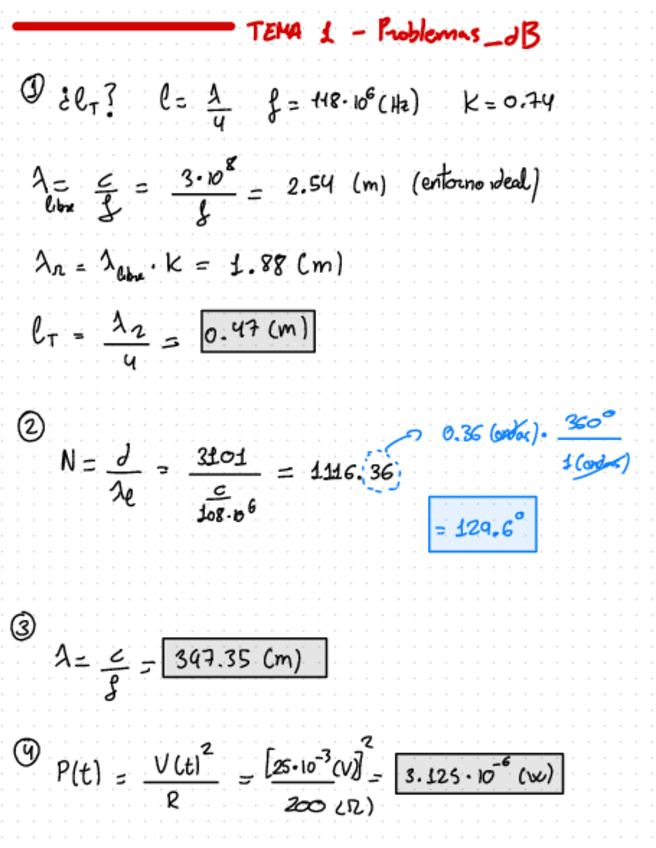 TEMA 1 - Problemas_dB
① ¿l_T? l = λ/4 f = 118·10⁶ (Hz) K = 0.74
λ_libre = c/f = 3·10⁸/f = 2.54 (m) (entorno ideal)
λ_r = λ_libre · K = 1.88 (m)
l_T = λ_2/4 = 0.47 (m)
②
N = d/λ_e = 3101/(c/108·10⁶) = 1116.36
0.36 (ondas) · 360°/1 (ondas)
= 129.6°
③
λ = c/f = 397.35 (m)
④ P(t) = V(t)²/R = [25·10⁻³ (V)]²/200 (Ω) = 3.125·10⁻⁶ (W)